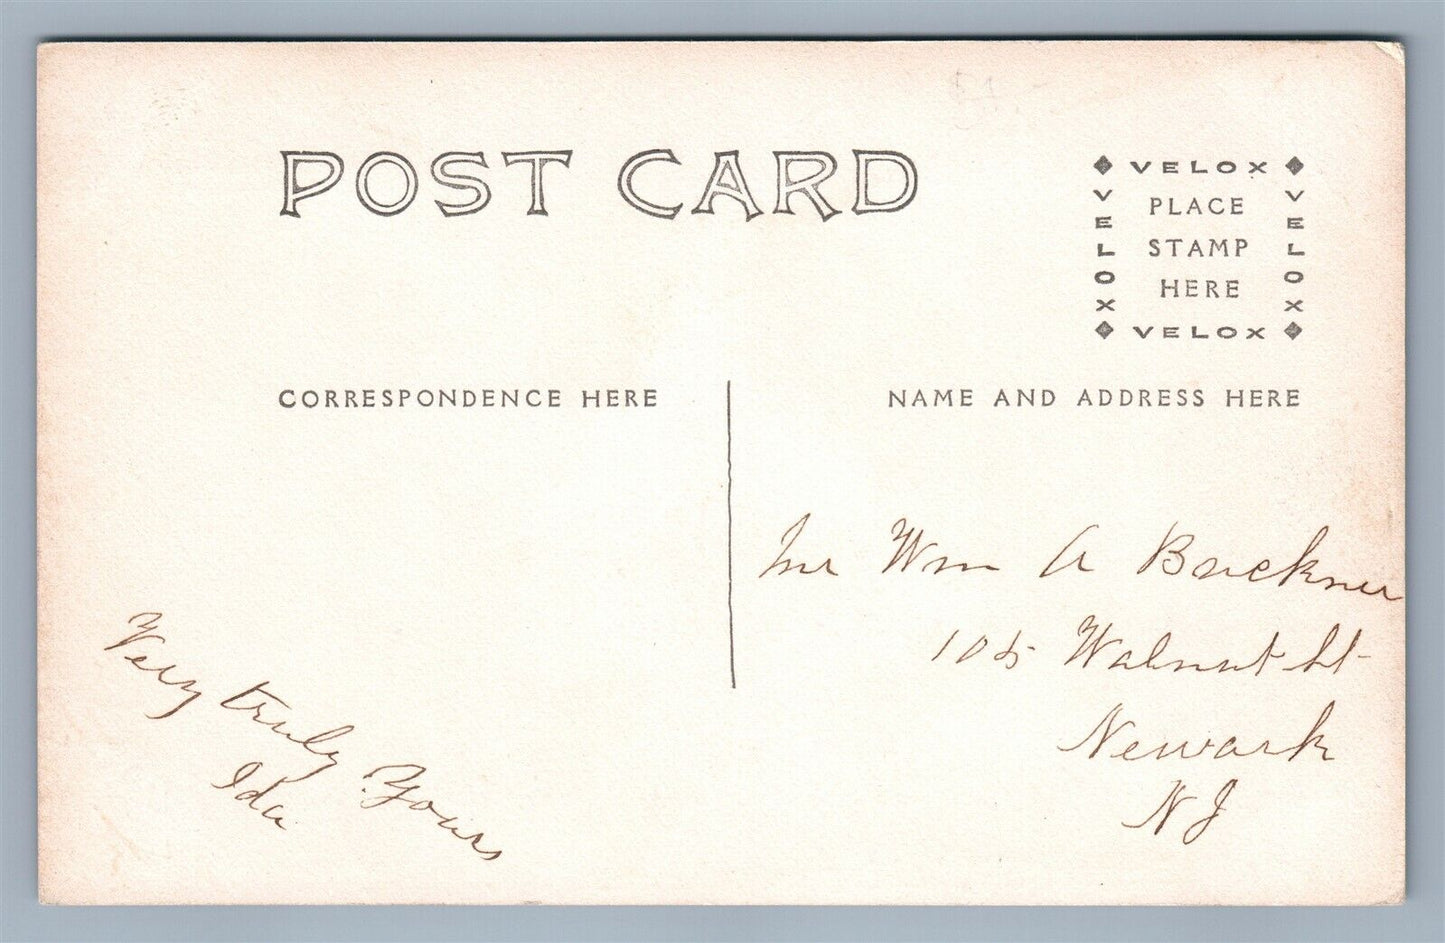 POST CARD
VELOX
VELOX
VELOX
PLACE
STAMP
HERE
VELOX
CORRESPONDENCE HERE
NAME AND ADDRESS HERE
Very truly Yours
Ida
Mr Wm A Buckner
105 Walnut St
Newark
NJ